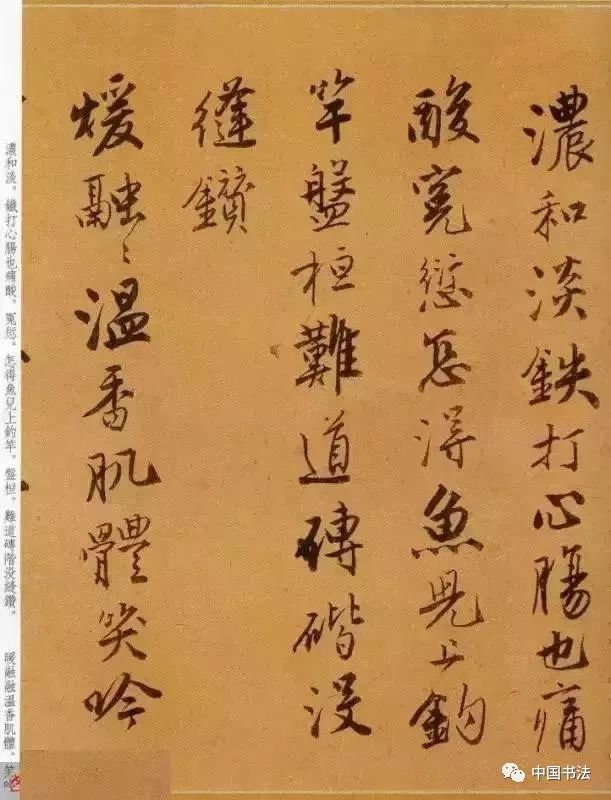 濃和淡鉄打心腸也痛
酸寃愆怎得魚児上鈎
竿盤桓難道磚堦沒
縫鑽
煖融〻溫香肌體笑吟
濃和淡。鐵打心腸也痛酸。冤愆。怎得魚兒上釣竿。盤桓。難道磚階没縫鑽。 暖融融溫香肌體。笑吟
中国书法